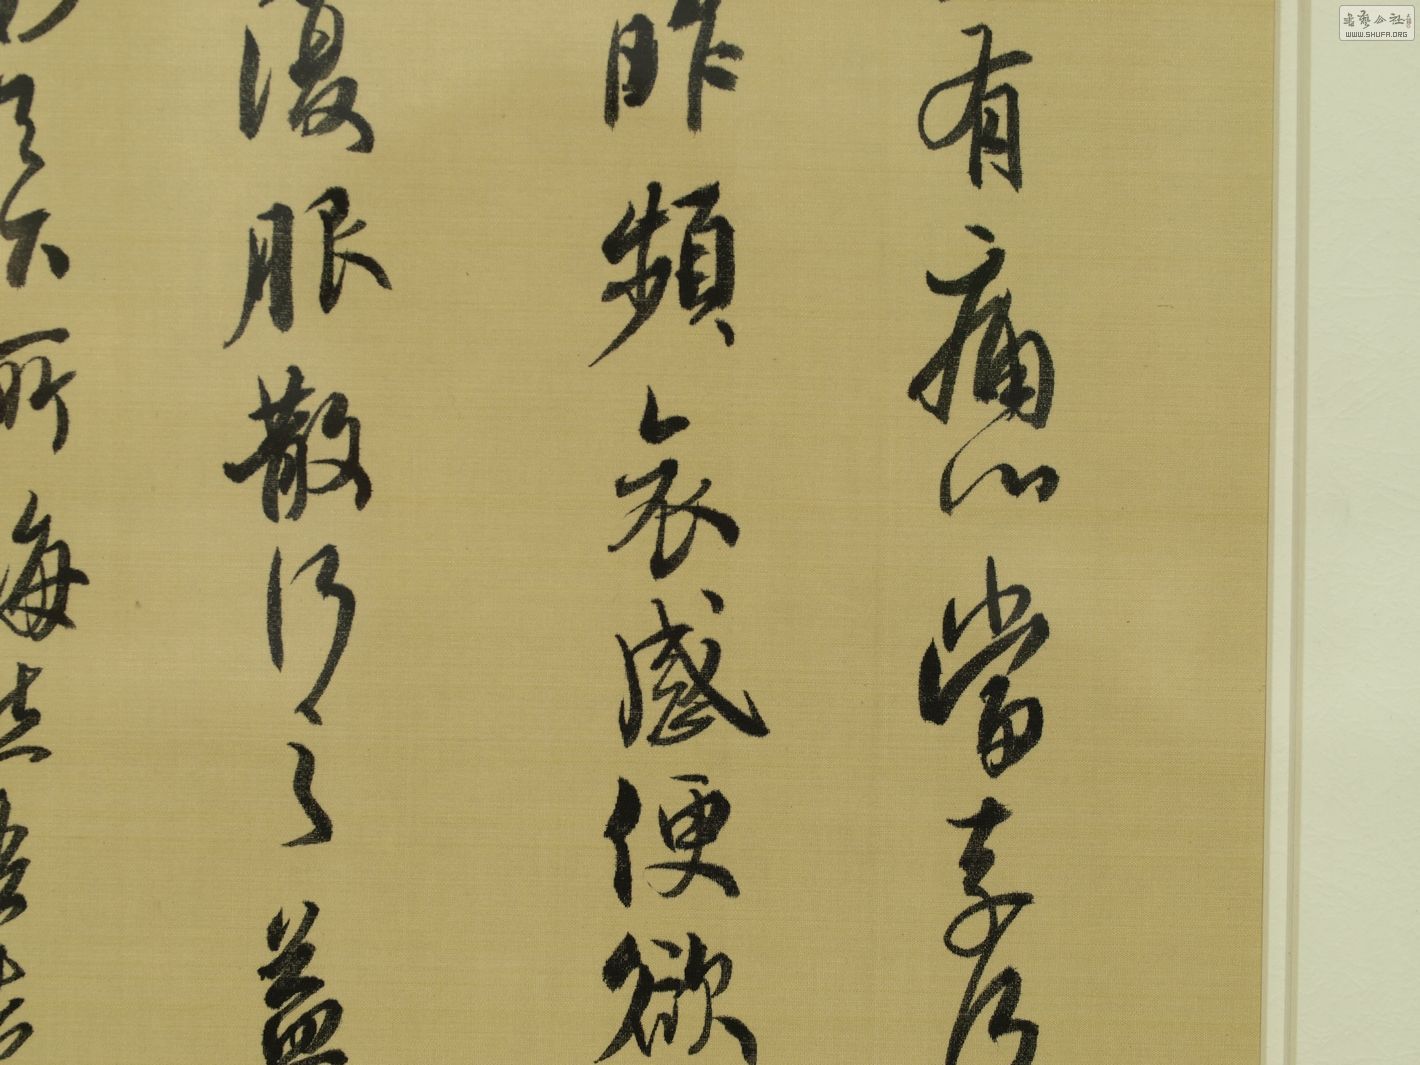 有痛心當奈何
昨頻哀感便欲
復服散行之益
足下所誨然吾老
書藝公社
WWW.SHUFA.ORG